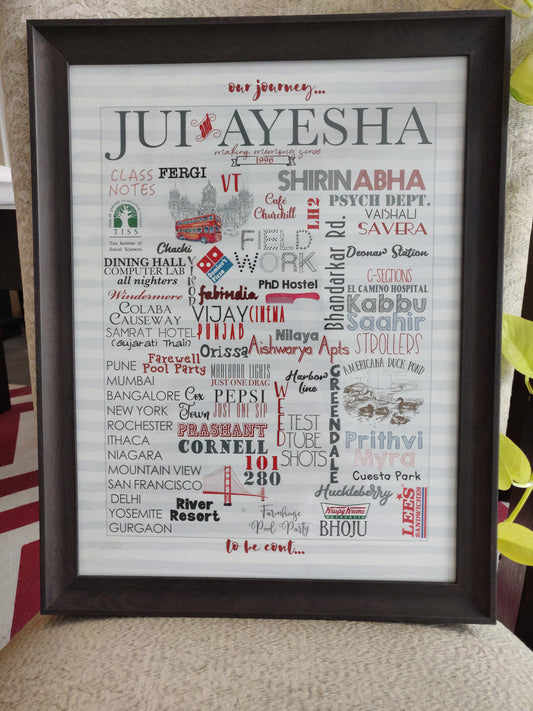 our journey...
JUI AYESHA
making memory since
1996
CLASS NOTES
FERGI
VT
SHIRINABHA
Café Churchill
LH2
PSYCH DEPT.
VAISHALI
SAVERA
TISS
Tata Institute of
Social Sciences
Chachi
FIELD WORK
Bhandarkar Rd.
Deonar Station
DINING HALL
COMPUTER LAB
all nighters
VINOD
Domino's Pizza
PhD Hostel
C-SECTIONS
EL CAMINO HOSPITAL
Windermere
fabindia
Kabbu
Saahir
COLABA
CAUSEWAY
VIJAY CINEMA
PUNJAB
SAMRAT HOTEL
(Gujarati Thali)
Nilaya
Orissa
Aishwarya Apts
STROLLERS
PUNE
Farewell
Pool Party
MARLBORO LIGHTS
JUST ONE DRAG
Harbour line
AMERICANA DUCK POND
MUMBAI
BANGALORE
Cox Town
PEPSI
JUST ONE SIP
WEED
GREENDALE
NEW YORK
ROCHESTER
PRASHANT
TEST TUBE SHOTS
ITHACA
CORNELL
Prithvi
Myra
NIAGARA
101
280
MOUNTAIN VIEW
Cuesta Park
SAN FRANCISCO
Huckleberry
DELHI
River Resort
Farmhouse
Pool Party
Krispy Kreme
DOUGHNUTS
LEE'S
SANDWICHES
YOSEMITE
GURGAON
BHOJU
to be cont...